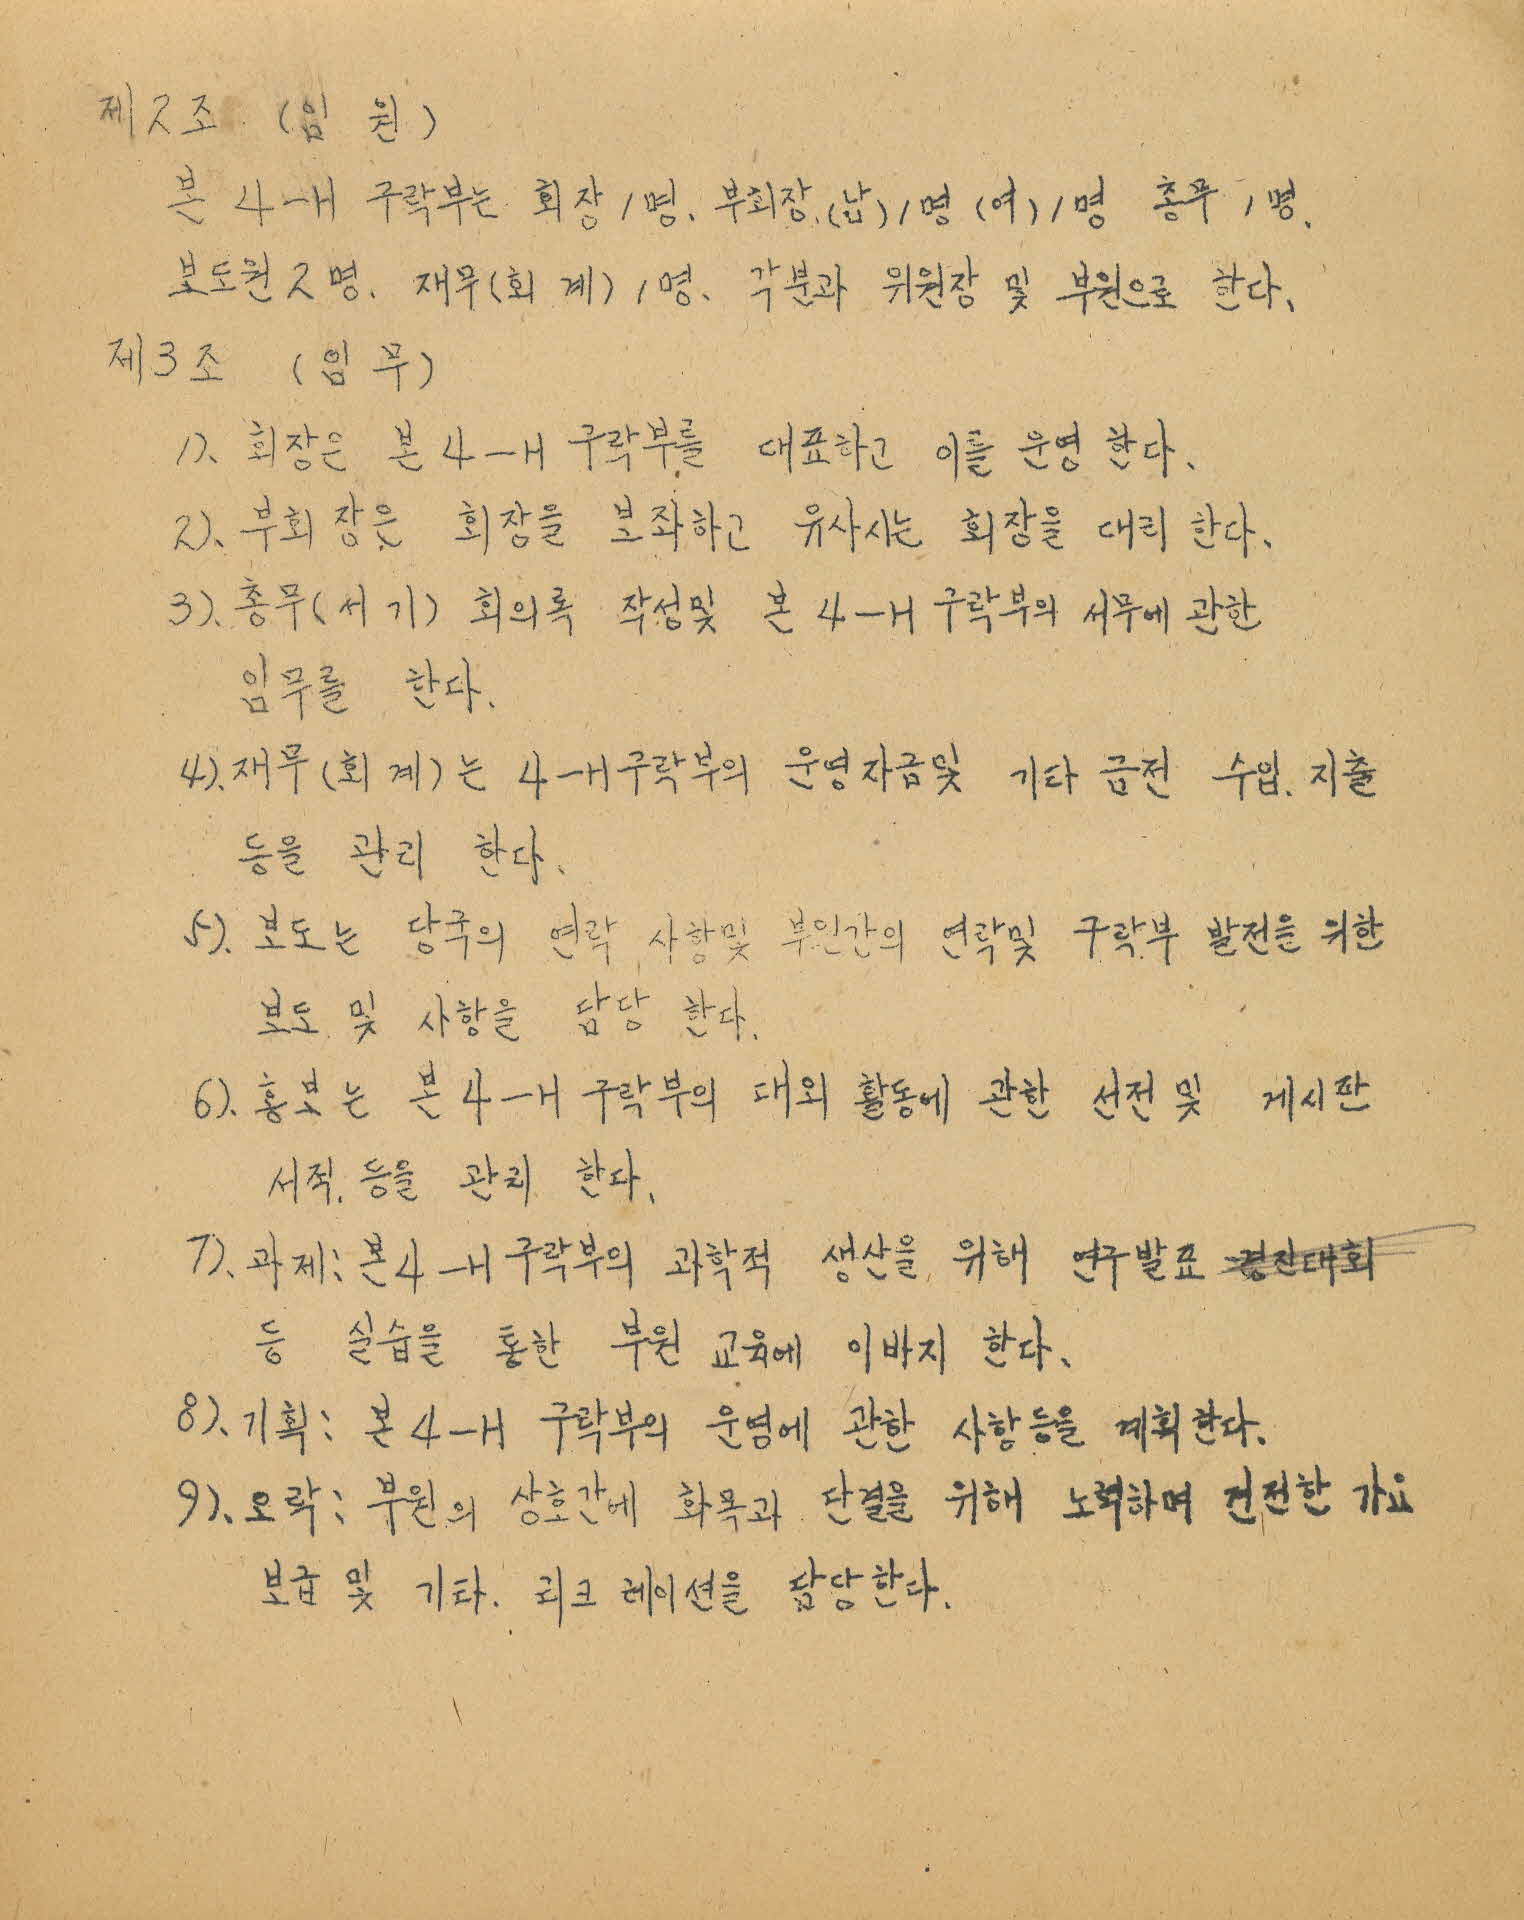 제2조 (임 원)
본 4-H 구락부는 회장 1명. 부회장.(남)1명 (여)1명 총무 1명.
보도원 2명. 재무(회 계) 1명. 각분과 위원장 및 부원으로 한다.
제3조 (임 무)
1). 회장은 본 4-H 구락부를 대표하고 이를 운영 한다.
2). 부회장은 회장을 보좌하고 유사시는 회장을 대리 한다.
3). 총무(서 기) 회의록 작성및 본 4-H 구락부의 서무에 관한
임무를 한다.
4). 재무(회 계)는 4-H구락부의 운영자금및 기타 금전 수입. 지출
등을 관리 한다.
5). 보도는 당국의 연락 사항및 부인간의 연락및 구락부 발전을 위한
보도 및 사항을 담당 한다.
6). 홍보는 본 4-H 구락부의 대외 활동에 관한 선전 및 게시판
서적. 등을 관리 한다.
7). 과제: 본4-H구락부의 과학적 생산을 위해 연구발표 경진대회
등 실습을 통한 부원 교육에 이바지 한다.
8). 기획: 본4-H 구락부의 운영에 관한 사항등을 계획한다.
9). 오락: 부원의 상호간에 화목과 단결을 위해 노력하며 건전한 가요
보급 및 기타. 리크레이션을 담당한다.